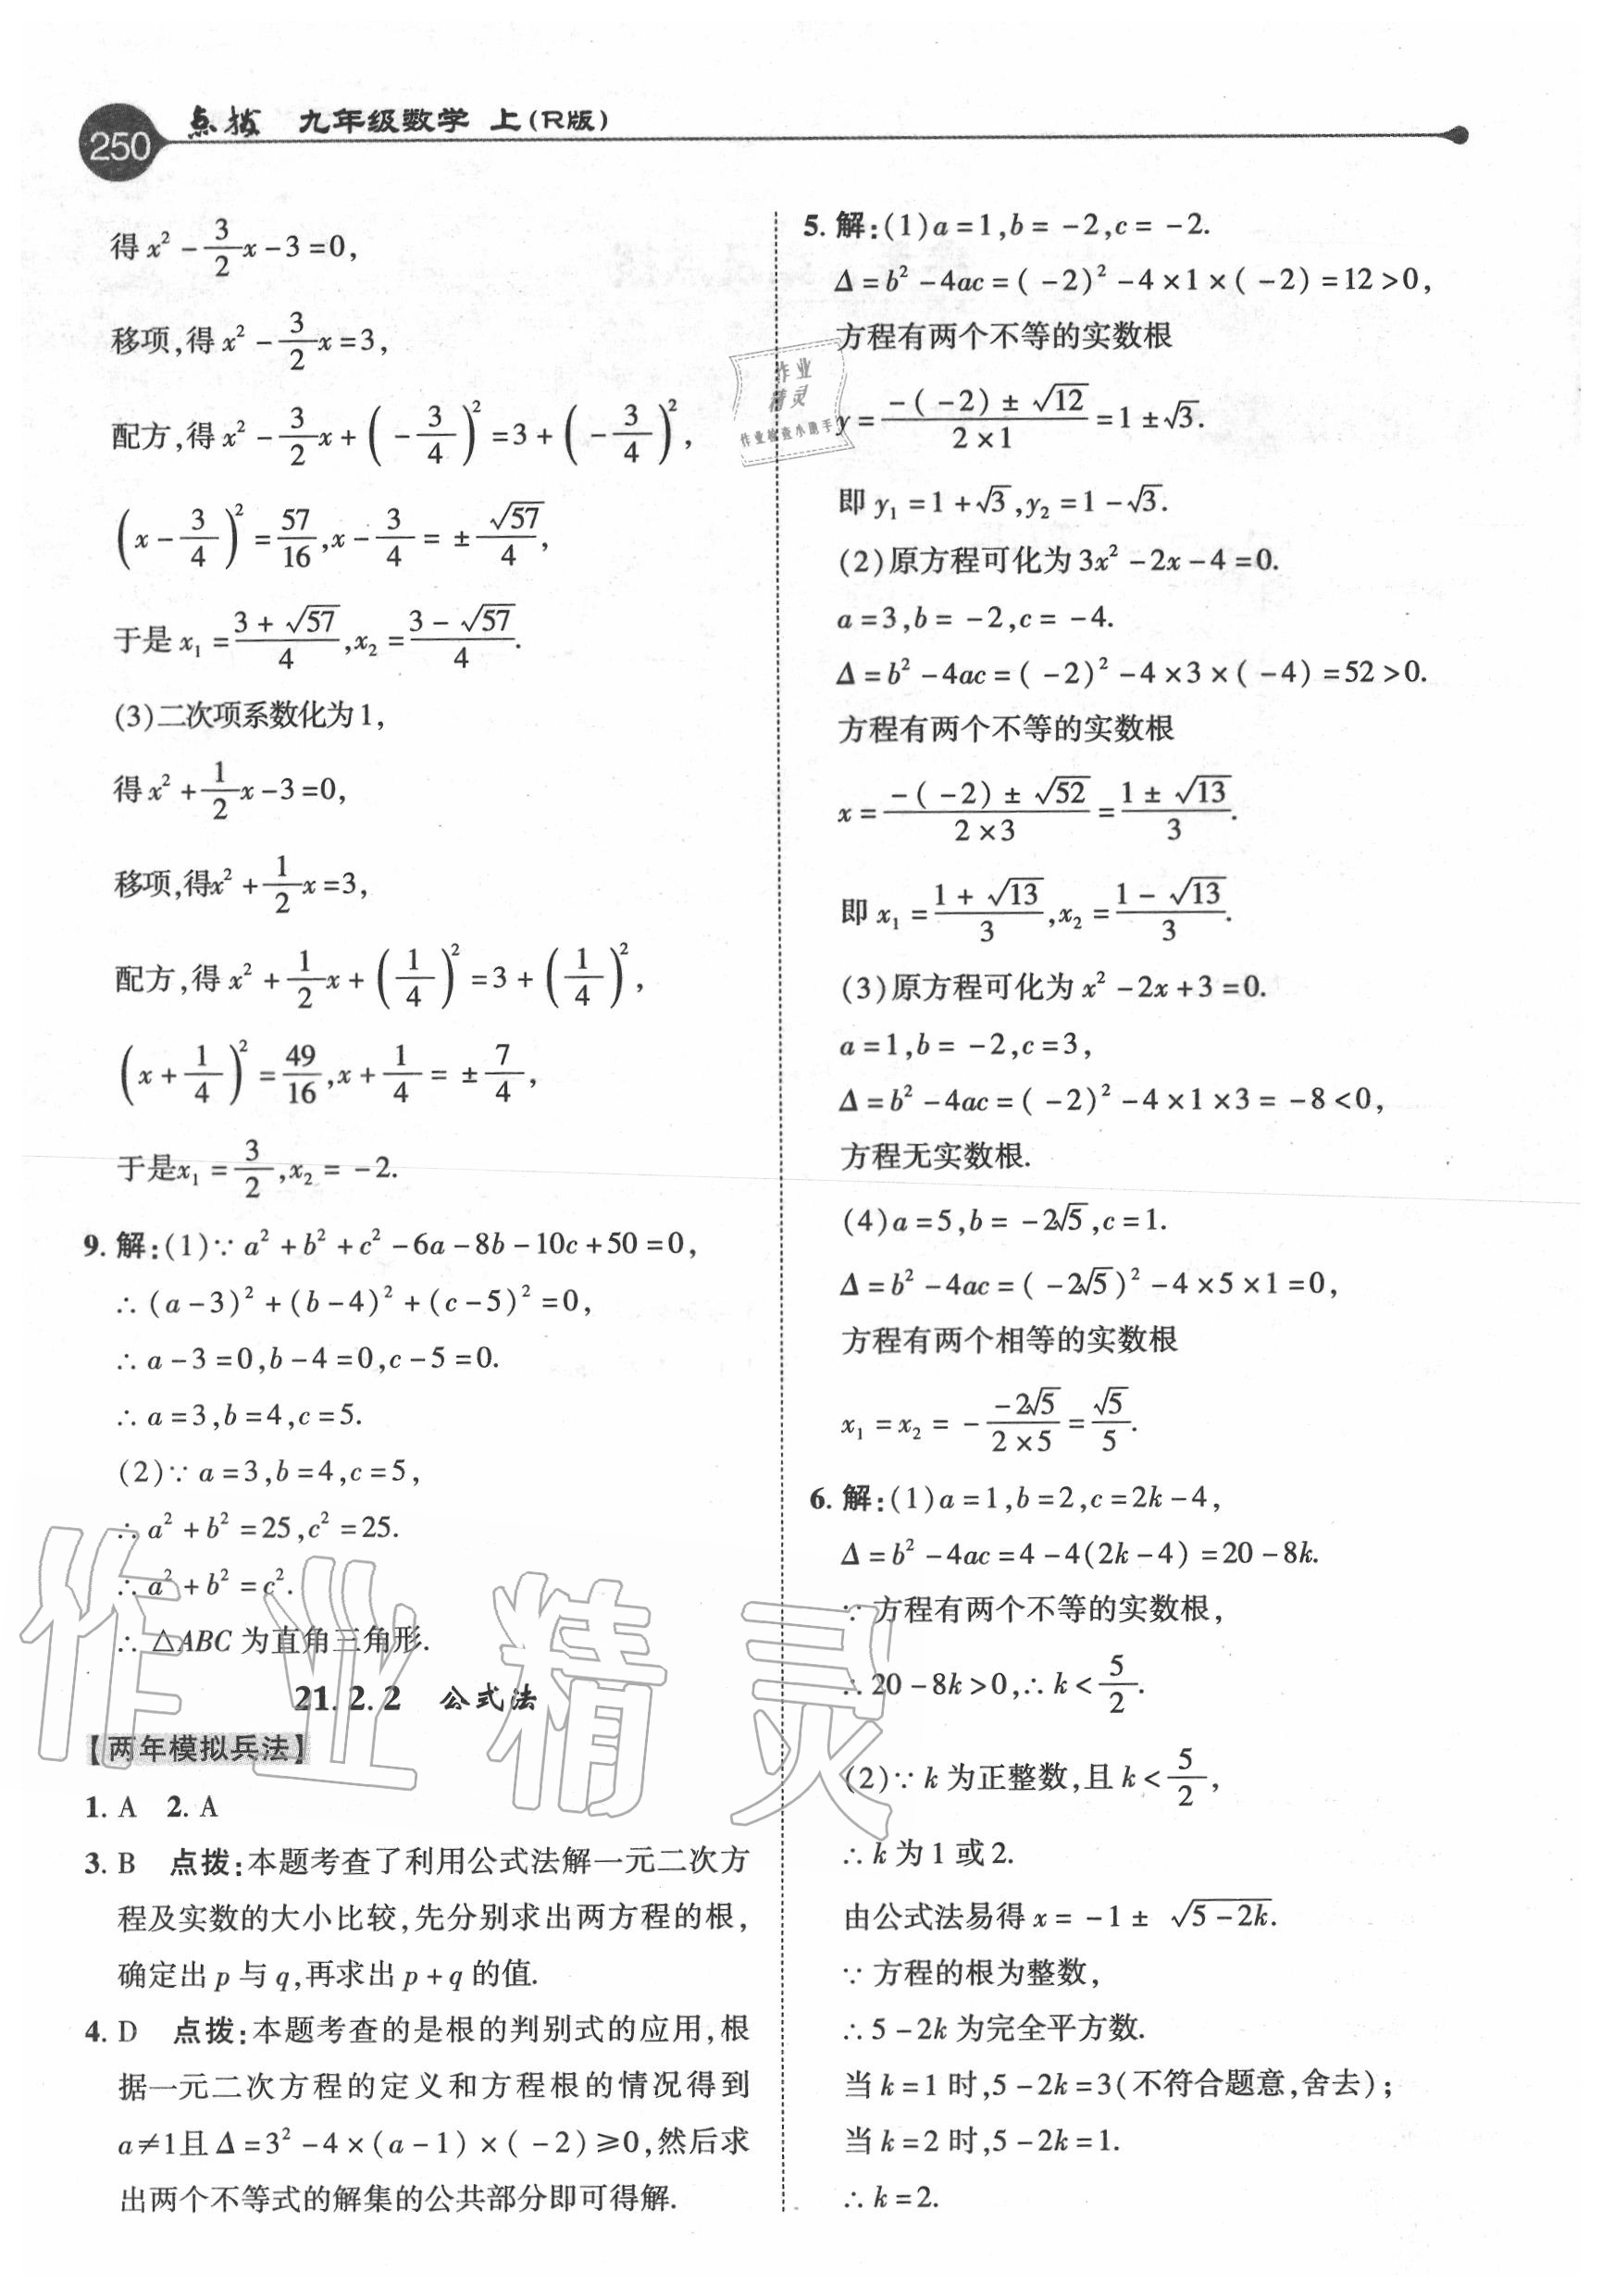 250 点拨 九年级数学 上(R版)
得x² - 3/2 x - 3 = 0,
移项,得x² - 3/2 x = 3,
配方,得x² - 3/2 x + (-3/4)² = 3 + (-3/4)²,
(x - 3/4)² = 57/16, x - 3/4 = ±√57/4,
于是x₁ = (3 + √57)/4, x₂ = (3 - √57)/4.
(3)二次项系数化为1,
得x² + 1/2 x - 3 = 0,
移项,得x² + 1/2 x = 3,
配方,得x² + 1/2 x + (1/4)² = 3 + (1/4)²,
(x + 1/4)² = 49/16, x + 1/4 = ±7/4,
于是x₁ = 3/2, x₂ = -2.
9. 解:(1)∵ a² + b² + c² - 6a - 8b - 10c + 50 = 0,
∴ (a - 3)² + (b - 4)² + (c - 5)² = 0,
∴ a - 3 = 0, b - 4 = 0, c - 5 = 0.
∴ a = 3, b = 4, c = 5.
(2)∵ a = 3, b = 4, c = 5,
∴ a² + b² = 25, c² = 25.
∴ a² + b² = c².
∴ △ABC 为直角三角形.
21.2.2 公式法
【两年模拟兵法】
1. A 2. A
3. B 点拨:本题考查了利用公式法解一元二次方
程及实数的大小比较,先分别求出两方程的根,
确定出 p 与 q,再求出 p + q 的值.
4. D 点拨:本题考查的是根的判别式的应用,根
据一元二次方程的定义和方程根的情况得到
a≠1且 Δ = 3² - 4×(a - 1)×(-2)≥0,然后求
出两个不等式的解集的公共部分即可得解.
5. 解:(1)a = 1, b = -2, c = -2.
Δ = b² - 4ac = (-2)² - 4×1×(-2) = 12 > 0,
方程有两个不等的实数根
y = (-(-2) ± √12)/(2×1) = 1 ± √3.
即 y₁ = 1 + √3, y₂ = 1 - √3.
(2)原方程可化为 3x² - 2x - 4 = 0.
a = 3, b = -2, c = -4.
Δ = b² - 4ac = (-2)² - 4×3×(-4) = 52 > 0.
方程有两个不等的实数根
x = (-(-2) ± √52)/(2×3) = (1 ± √13)/3.
即 x₁ = (1 + √13)/3, x₂ = (1 - √13)/3.
(3)原方程可化为 x² - 2x + 3 = 0.
a = 1, b = -2, c = 3,
Δ = b² - 4ac = (-2)² - 4×1×3 = -8 < 0,
方程无实数根.
(4)a = 5, b = -2√5, c = 1.
Δ = b² - 4ac = (-2√5)² - 4×5×1 = 0,
方程有两个相等的实数根
x₁ = x₂ = - (-2√5)/(2×5) = √5/5.
6. 解:(1)a = 1, b = 2, c = 2k - 4,
Δ = b² - 4ac = 4 - 4(2k - 4) = 20 - 8k.
∵ 方程有两个不等的实数根,
∴ 20 - 8k > 0, ∴ k < 5/2.
(2)∵ k 为正整数,且 k < 5/2,
∴ k 为 1 或 2.
由公式法易得 x = -1 ± √(5 - 2k).
∵ 方程的根为整数,
∴ 5 - 2k 为完全平方数.
当 k = 1 时, 5 - 2k = 3(不符合题意,舍去);
当 k = 2 时, 5 - 2k = 1.
∴ k = 2.
作业
精灵
作业检查小助手
作业精灵